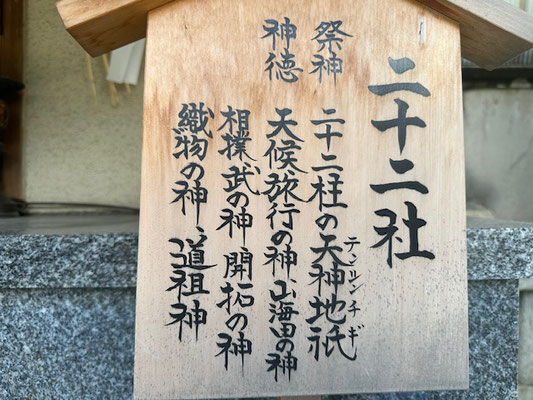 二十二社
祭神 二十二柱の天神地祇
テンジンチギ
神徳 天候旅行の神、山海田の神
相撲、武の神 開拓の神
織物の神、道祖神